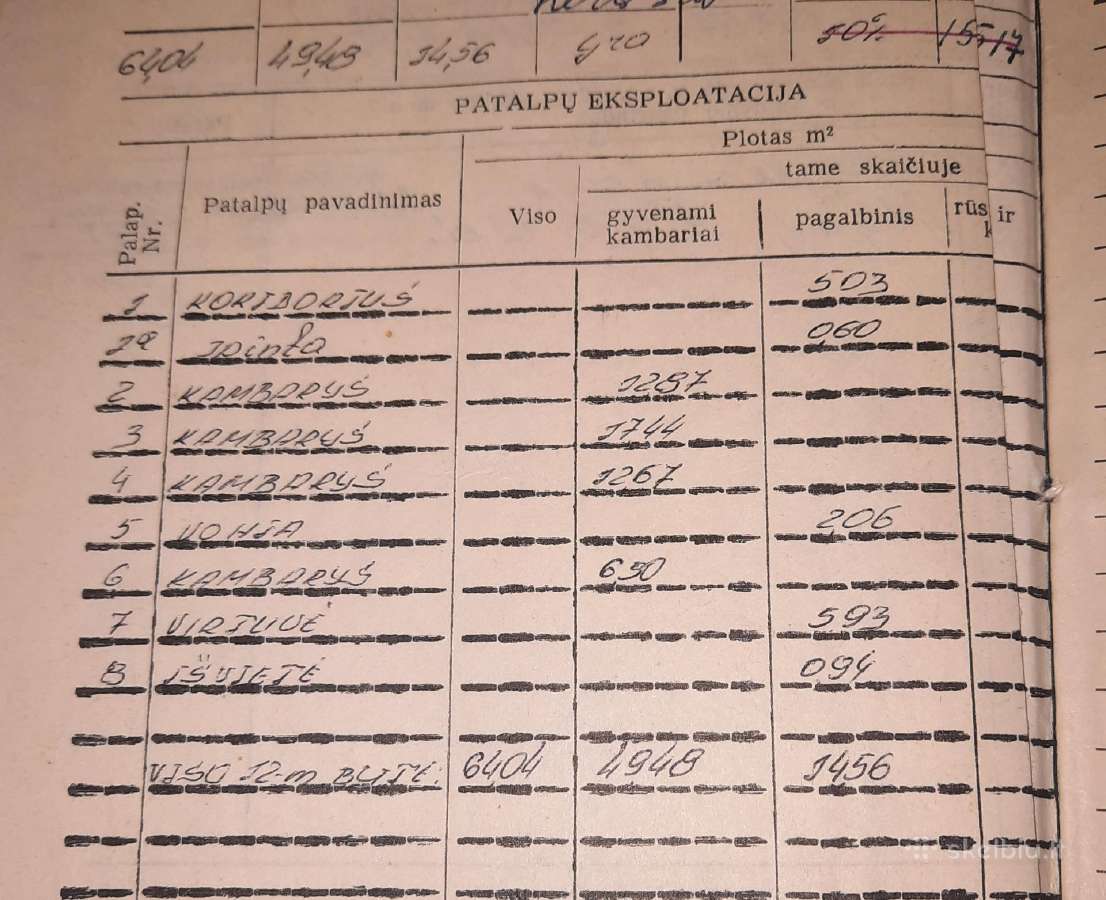 64,04 49,48 14,56 10% 155,17
PATALPŲ EKSPLOATACIJA
Plotas m²
tame skaičiuje
Palap. Nr. Patalpų pavadinimas Viso gyvenami kambariai pagalbinis rūs ir
1 KORIDORIUS 503
1a spinta 0,60
2 KAMBARYS 1287
3 KAMBARYS 1744
4 KAMBARYS 1267
5 VONIA 206
6 KAMBARYS 650
7 VIRTUVĖ 593
8 IŠVIETĖ 094
VISO 12-m BUTE: 6404 4948 1456
skelbiu.lt